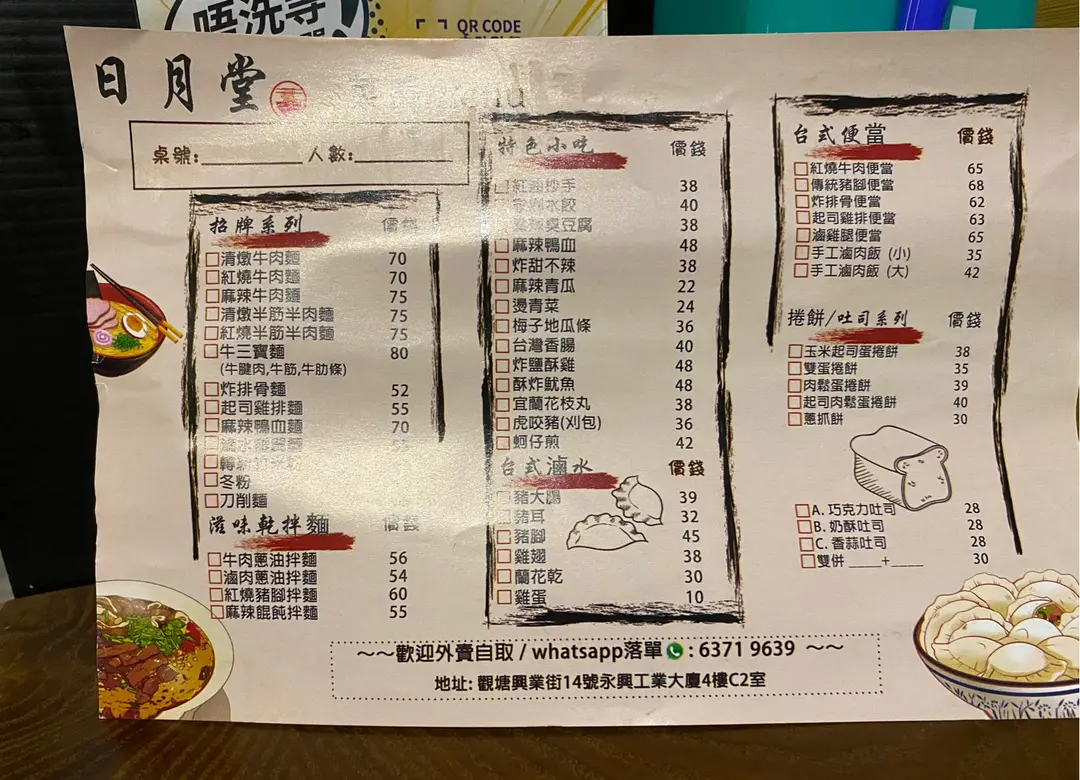 唔洗等
QR CODE
日月堂
桌號:________人數:________
招牌系列 價錢
清燉牛肉麵 70
紅燒牛肉麵 70
麻辣牛肉麵 75
清燉半筋半肉麵 75
紅燒半筋半肉麵 75
牛三寶麵 80
(牛腱肉,牛筋,牛肋條)
炸排骨麵 52
起司雞排麵 55
麻辣鴨血麵 70
55
冬粉
刀削麵
滋味乾拌麵 價錢
牛肉蔥油拌麵 56
滷肉蔥油拌麵 54
紅燒豬腳拌麵 60
麻辣餛飩拌麵 55
特色小吃 價錢
紅油抄手 38
水餃 40
臭豆腐 38
麻辣鴨血 48
炸甜不辣 38
麻辣青瓜 22
燙青菜 24
梅子地瓜條 36
台灣香腸 40
炸鹽酥雞 48
酥炸魷魚 48
宜蘭花枝丸 38
虎咬豬(刈包) 36
蚵仔煎 42
台式滷水 價錢
豬大腸 39
豬耳 32
豬腳 45
雞翅 38
蘭花乾 30
雞蛋 10
台式便當 價錢
紅燒牛肉便當 65
傳統豬腳便當 68
炸排骨便當 62
起司雞排便當 63
滷雞腿便當 65
手工滷肉飯 (小) 35
手工滷肉飯 (大) 42
捲餅/吐司系列 價錢
玉米起司蛋捲餅 38
雙蛋捲餅 35
肉鬆蛋捲餅 39
起司肉鬆蛋捲餅 40
蔥抓餅 30
A. 巧克力吐司 28
B. 奶酥吐司 28
C. 香蒜吐司 28
雙併 ____+____ 30
～～歡迎外賣自取 / whatsapp落單 : 6371 9639 ～～
地址: 觀塘興業街14號永興工業大廈4樓C2室